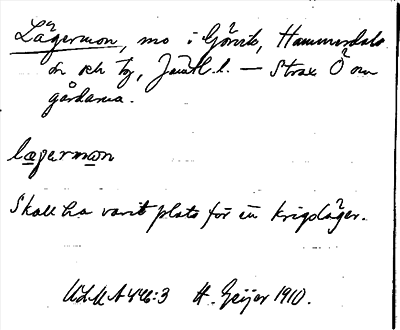 Lägermon, mo i Görvik, Hammerdals
sn och tg, Jämtl. l. — Strax Ö om
gårdarna.
lægermøn
Skall ha varit plats för en krigsläger.
ULMA 446:3 H. Geijer 1910.